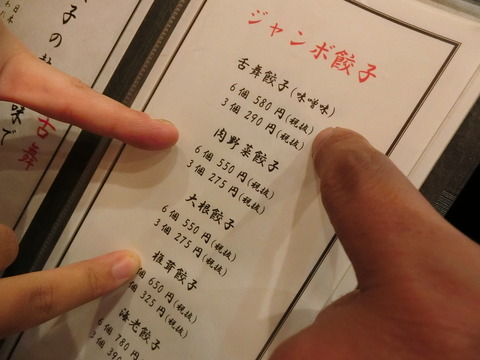 ジャンボ餃子
舌舞餃子(味噌味)
6個 580円(税抜)
3個 290円(税抜)
肉野菜餃子
6個 550円(税抜)
3個 275円(税抜)
大根餃子
6個 550円(税抜)
3個 275円(税抜)
椎茸餃子
650円(税抜)
個 325円(税抜)
海老餃子
6個 780円(税抜)
3個 390
味で
子の
舌舞